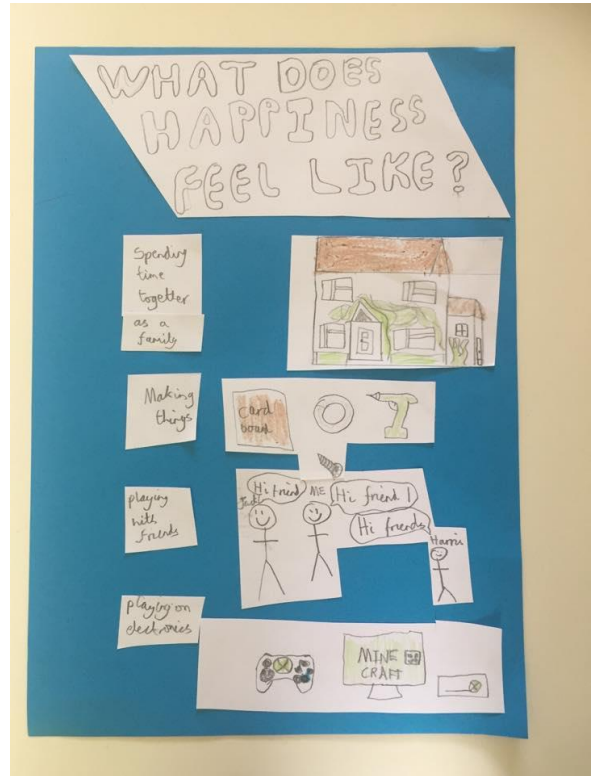 WHAT DOES
HAPPINESS
FEEL LIKE?
Spending
time
together
as a
family
Making
things
card
board
playing
with
Friends
Hi friend
ME
Hi friend !
Hi friends
Harris
playing on
electronics
MINE
CRAFT